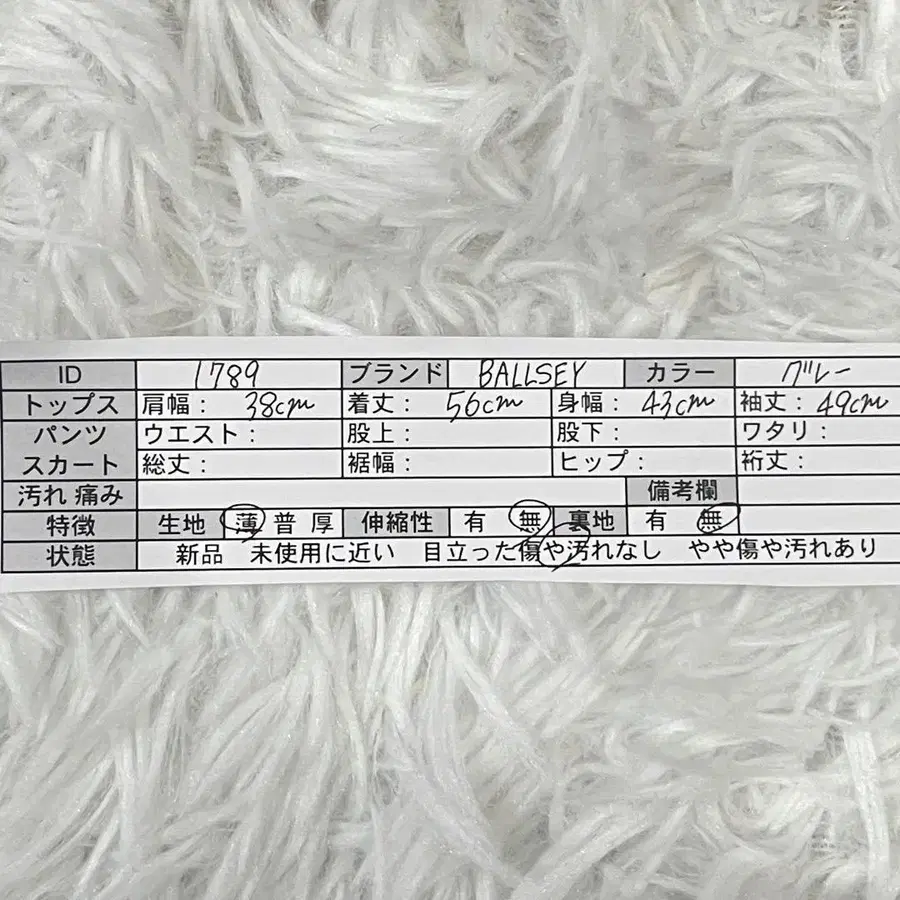 ID 1789 ブランド BALLSEY カラー グレー
トップス 肩幅： 38cm 着丈： 56cm 身幅： 43cm 袖丈： 49cm
パンツ ウエスト： 股上： 股下： ワタリ：
スカート 総丈： 裾幅： ヒップ： 裄丈：
汚れ 痛み 備考欄
特徴 生地 薄 普 厚 伸縮性 有 無 裏地 有 無
状態 新品 未使用に近い 目立った傷や汚れなし やや傷や汚れあり